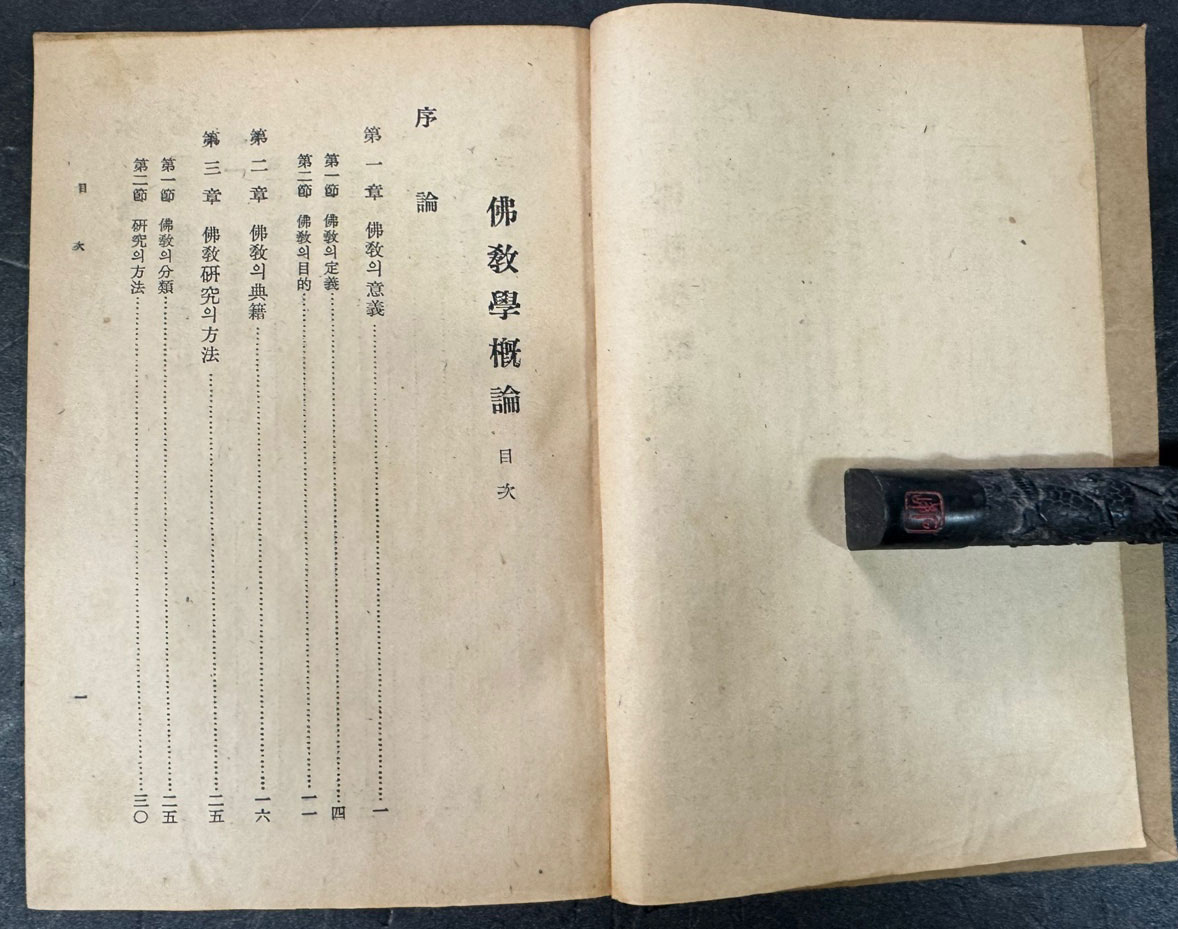 佛敎學槪論 目次
序論
第一章 佛敎의意義 一
第一節 佛敎의定義 四
第二節 佛敎의目的 一一
第二章 佛敎의典籍 一六
第三章 佛敎硏究의方法 二五
第一節 佛敎의分類 二五
第二節 硏究의方法 三〇
目次 一